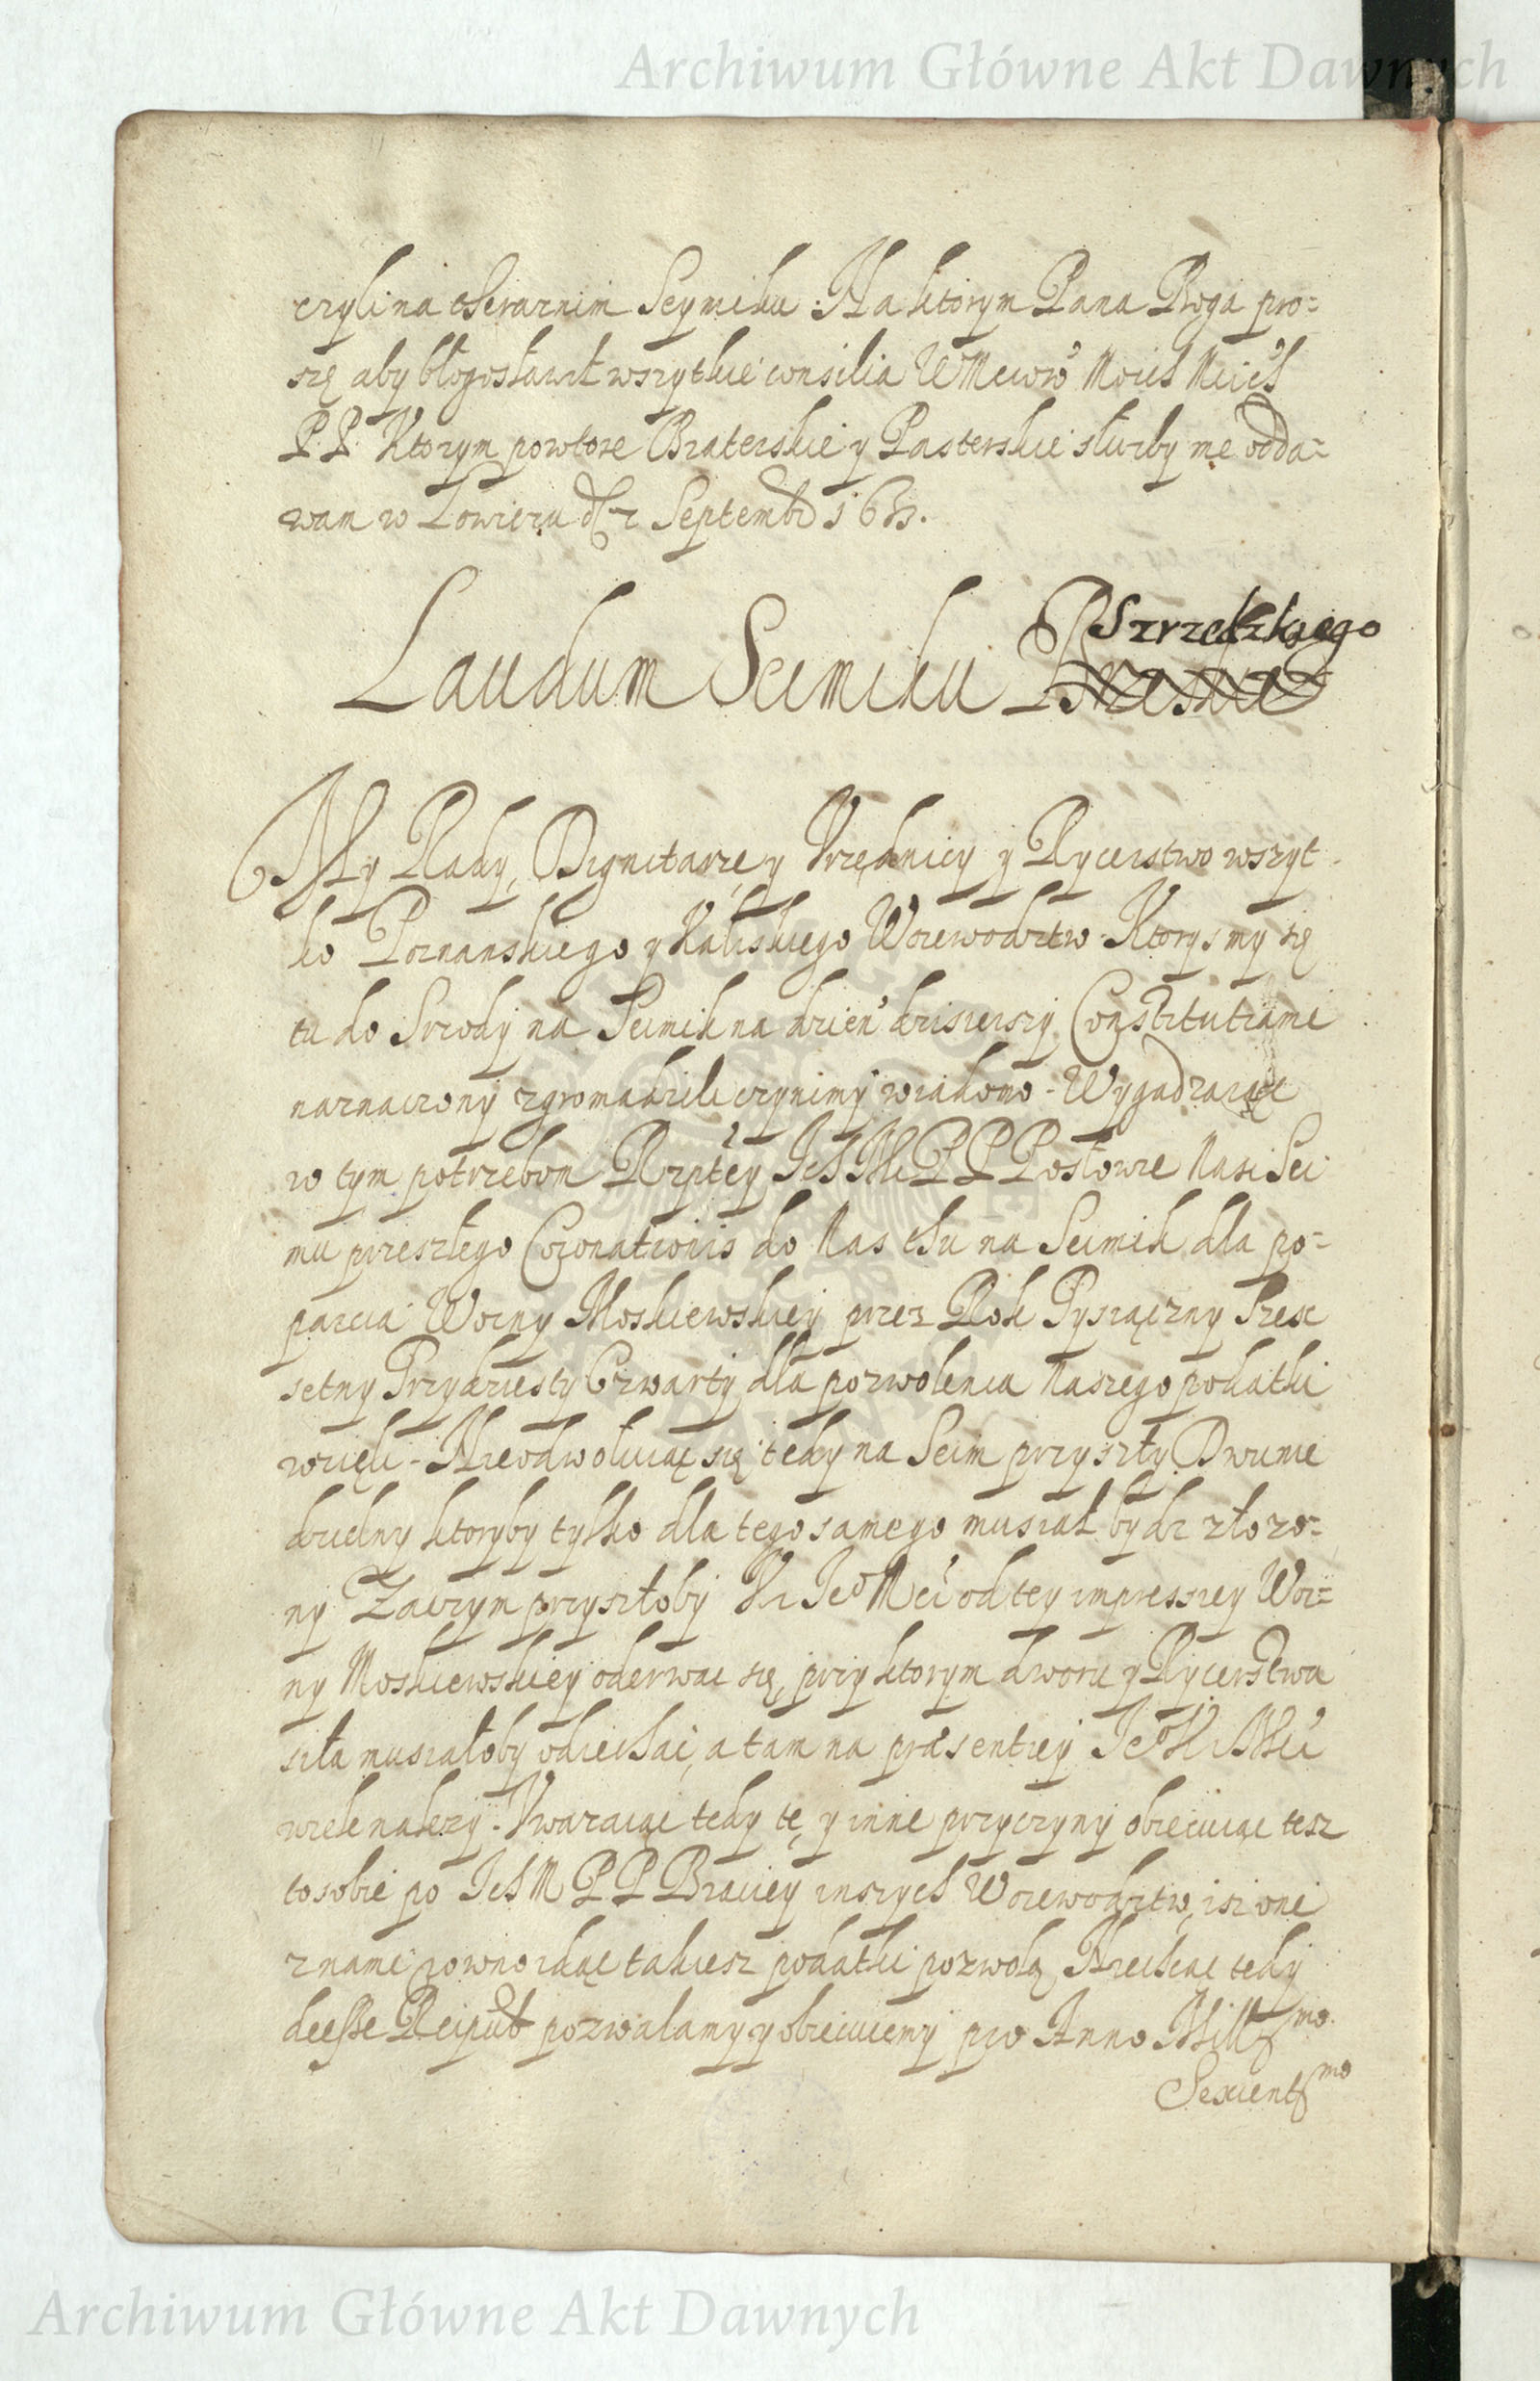 Archiwum Główne Akt Dawnych
czyli na theraznim Seymiku. Na ktorym Pana Boga pro=
szę aby błogosławił wszytkie consilia WMciow Moich Mcich
P.P. Ktorym powtore Braterskie y Pasterskie służby me odda=
wam w Łowiczu d 2 Septembr 1633.
Laudum Seimiku Szrzedzkiego
My Rady, Dignitarze, y Vrzędnicy y Rycerstwo wszyt
ko Poznanskiego y Kaliskiego Woiewodztw. Ktorysmy się
tu do Srzody na Seimik na dzien dzisieiszy Constitutiami
naznaczony zgromadzili czynimy wiadomo. Wygadzaiąc
w tym potrzebom Rzptey IchMPPPosłowie Nasi Sei
mu przeszłego Coronationis do Nas thu na Seimik dla po=
parcia Woiny Moskiewskiey przez Rok Tysiączny Szesc
setny Trzydziesty Czwarty dla pozwolenia Naszego podatki
wzięli. Nieodwołuiąc się tedy na Seim przyszły Dwunie
dzielny ktoryby tylko dla tego samego musiał bydz złozo=
ny Zaczym przyszłoby K IeoMci od tey impressiey Woi=
ny Moskiewskiey oderwac się, przy ktorym dworu y Rycerstwa
siła musiałoby odiechac, a tam na praesentiey Ieo K Mci
wiele nalezy. Vwazaiąc tedy te, y inne przyczyny obiecuiąc tesz
to sobie po IchM PP Braciey inszych Woiewodztw, isz oni
z nami rowno idąc takiesz podatki pozwolą Niechcąc tedy
deesse Reipub pozwalamy y obiecuiemy pro Anno Mill mo.
Sexcent mo
Archiwum Główne Akt Dawnych